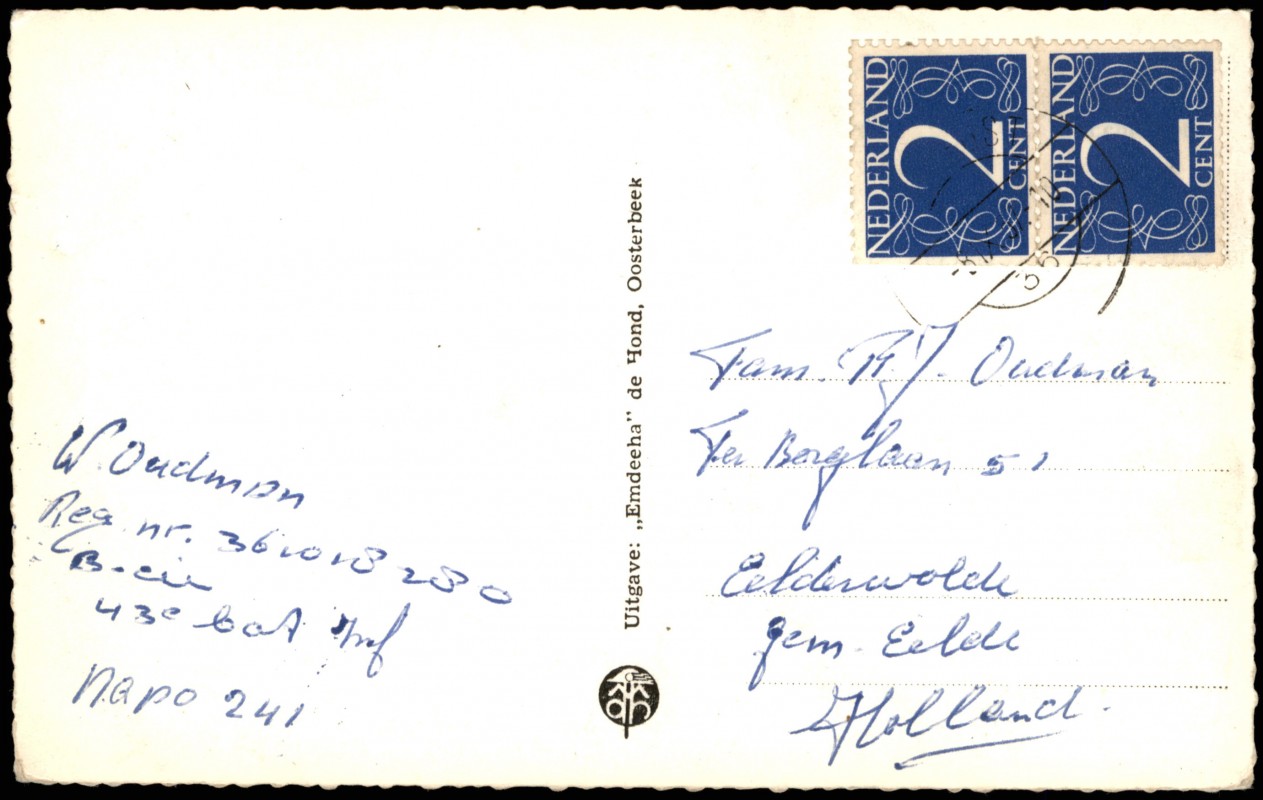 W. Oudman
Reg. nr. 361018280
B-cie
43e bat Inf
Napo 241
Uitgave: „Emdeeha” de Hond, Oosterbeek
NEDERLAND
2
CENT
NEDERLAND
2
CENT
Fam. Oudman
Ter Borglaan 51
Eelderwolde
gem. Eelde
Holland.